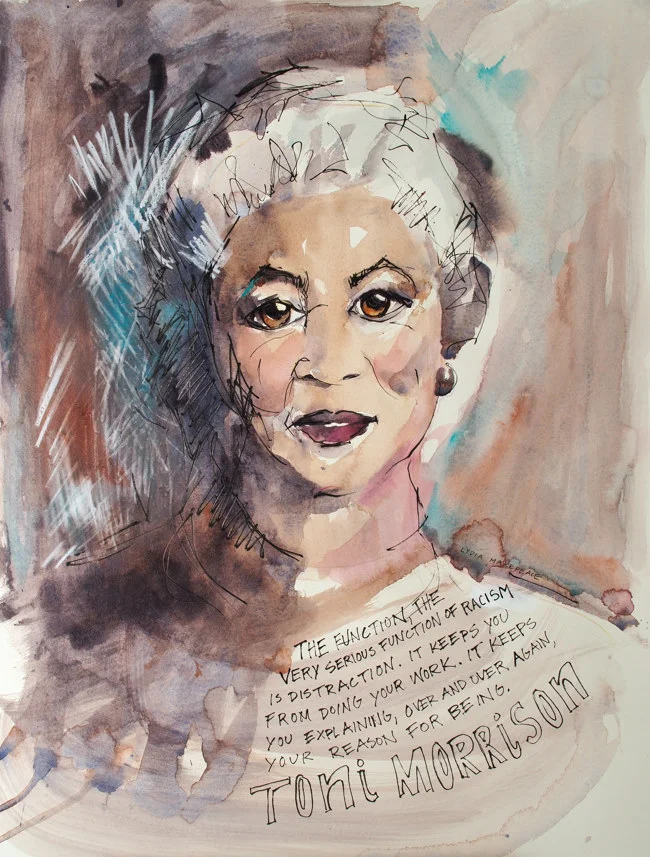 LYDIA
THE FUNCTION, THE
VERY SERIOUS FUNCTION OF RACISM
IS DISTRACTION. IT KEEPS YOU
FROM DOING YOUR WORK. IT KEEPS
YOU EXPLAINING, OVER AND OVER AGAIN,
YOUR REASON FOR BEING.
TONI MORRISON